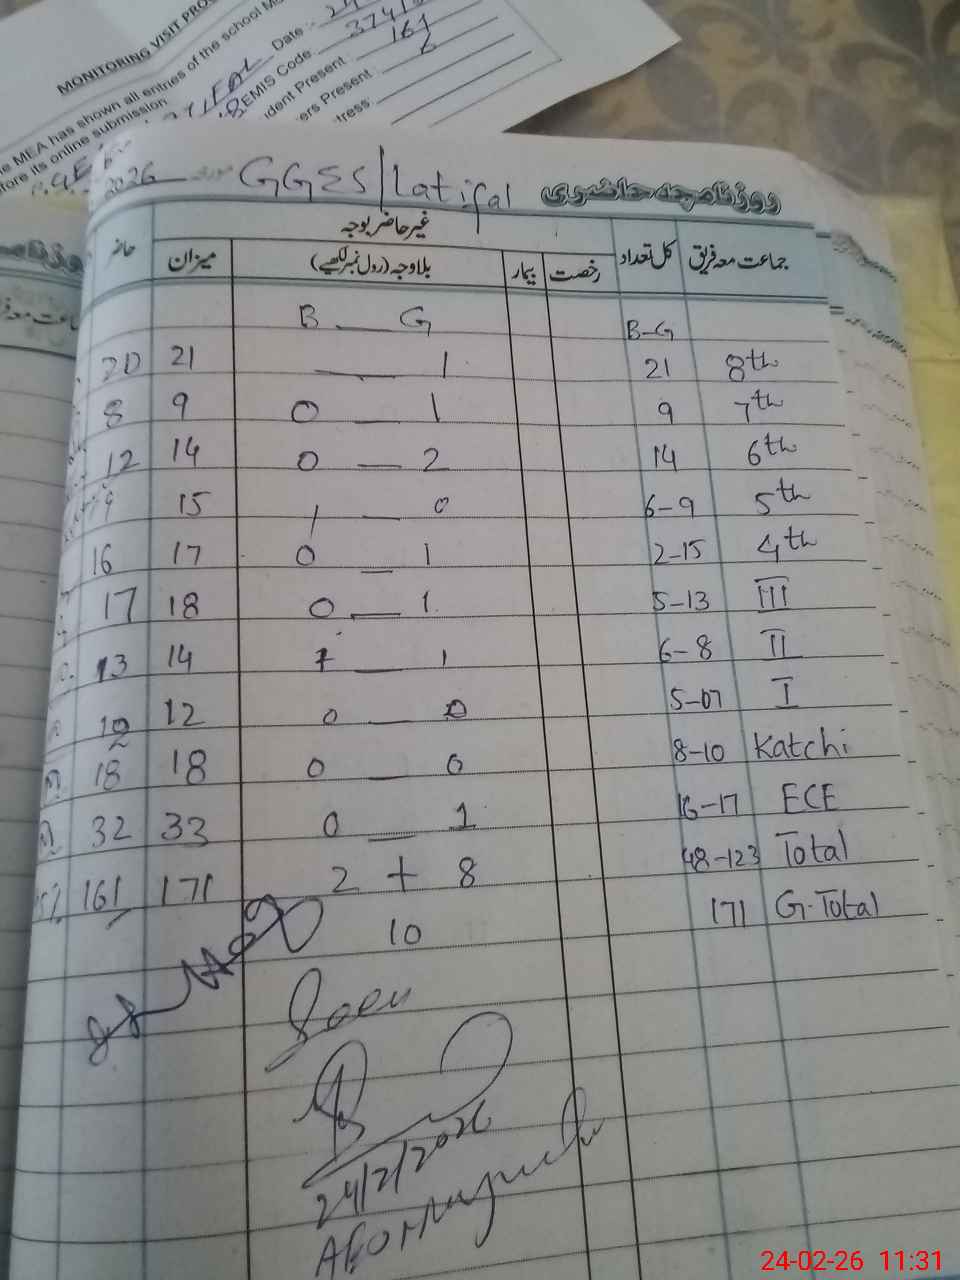 MONITORING VISIT PRO
e MEA has shown all entries of the school M
fore its online submission
Date :-
EMIS Code:
udent Present : 161
ers Present: 6
tress:
2026 GGES/Latifal روزنامچہ حاضری
جماعت معہ فریق کل تعداد غیر حاضر بوجہ میزان حاضر
رخصت بیمار بلاوجہ (رول نمبر لکھیے)
B — G B-G
20 21 — 1 21 8th
8 9 0 — 1 9 7th
12 14 0 — 2 14 6th
15 1 — 0 6-9 5th
16 17 0 — 1 2-15 4th
17 18 0 — 1 5-13 III
13 14 1 — 1 6-8 II
12 12 0 — 0 5-07 I
18 18 0 — 0 8-10 Katchi
32 33 0 — 1 16-17 ECE
161 171 2 + 8 48-123 Total
10 171 G.Total
Seen
24/2/2026
24-02-26 11:31